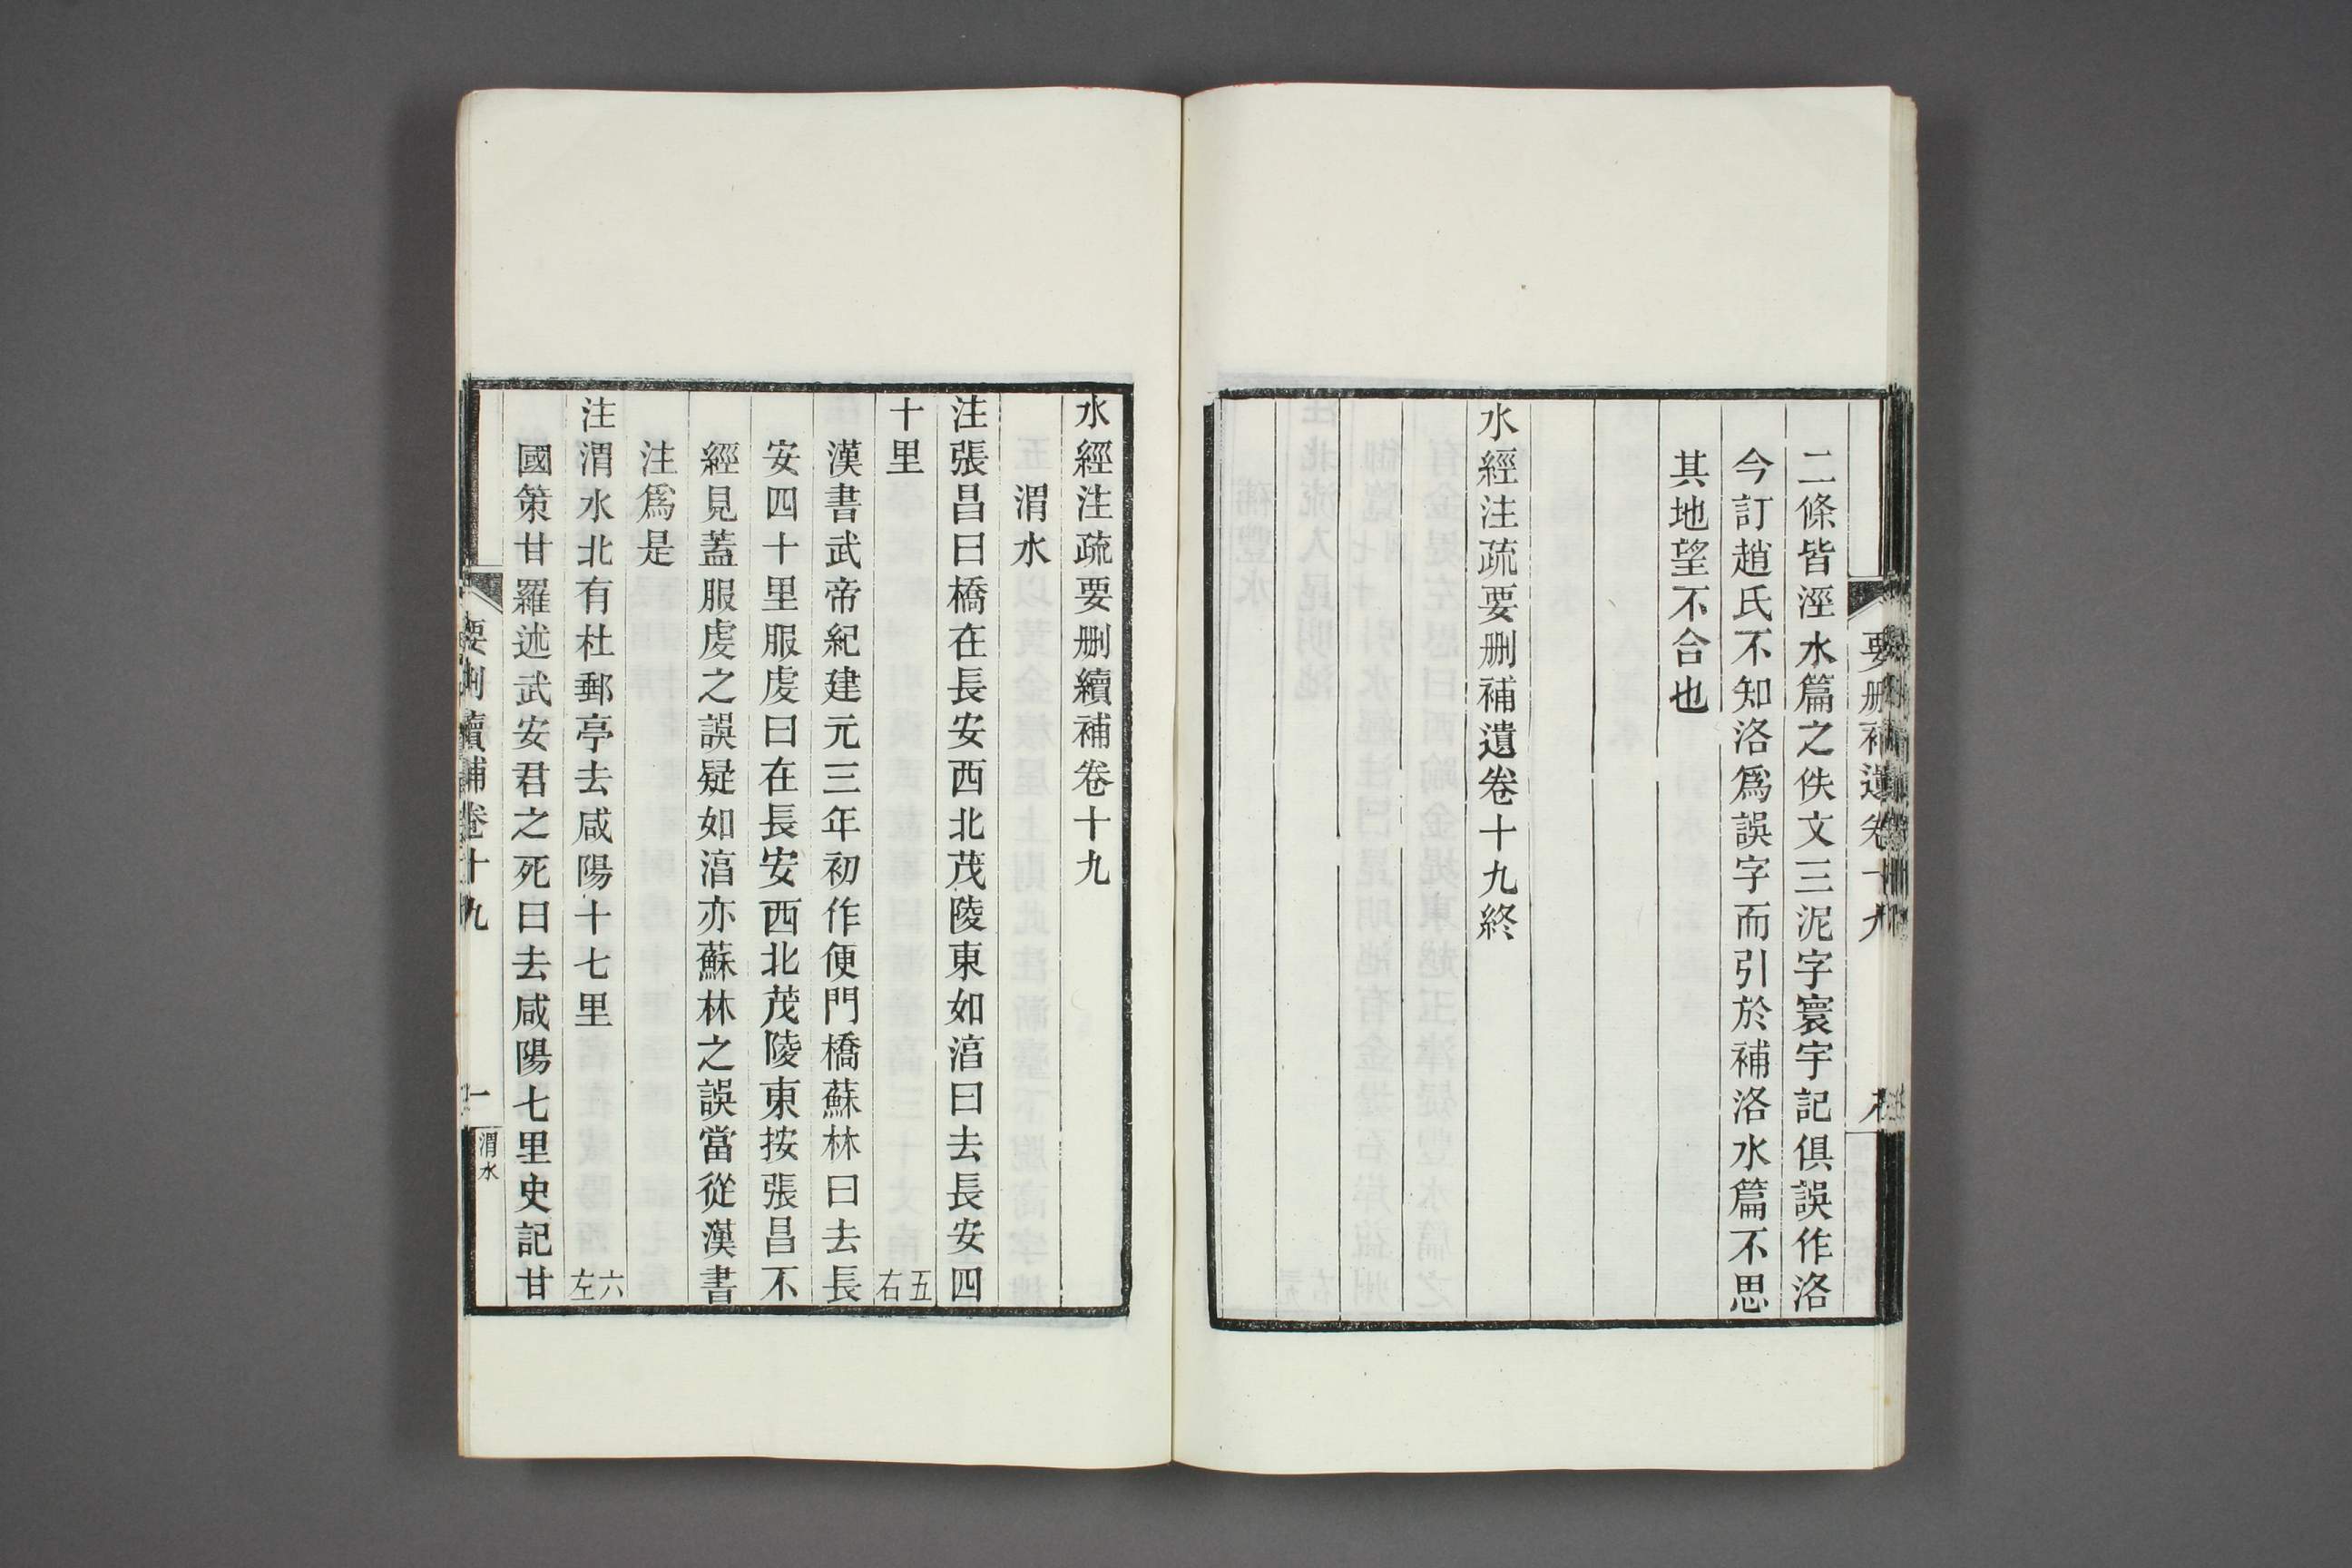 二條皆涇水篇之佚文三泥字寰宇記俱誤作洛
今訂趙氏不知洛爲誤字而引於補洛水篇不思
其地望不合也
水經注疏要刪補遺卷十九終
要刪補遺卷十九
水經注疏要刪續補卷十九
渭水
注張昌曰橋在長安西北茂陵東如湻曰去長安四
十里 五右
漢書武帝紀建元三年初作便門橋蘇林曰去長
安四十里服虔曰在長安西北茂陵東按張昌不
經見蓋服虔之誤疑如湻亦蘇林之誤當從漢書
注爲是
注渭水北有杜郵亭去咸陽十七里 六左
國策甘羅述武安君之死曰去咸陽七里史記甘
要刪續補卷十九 一 渭水